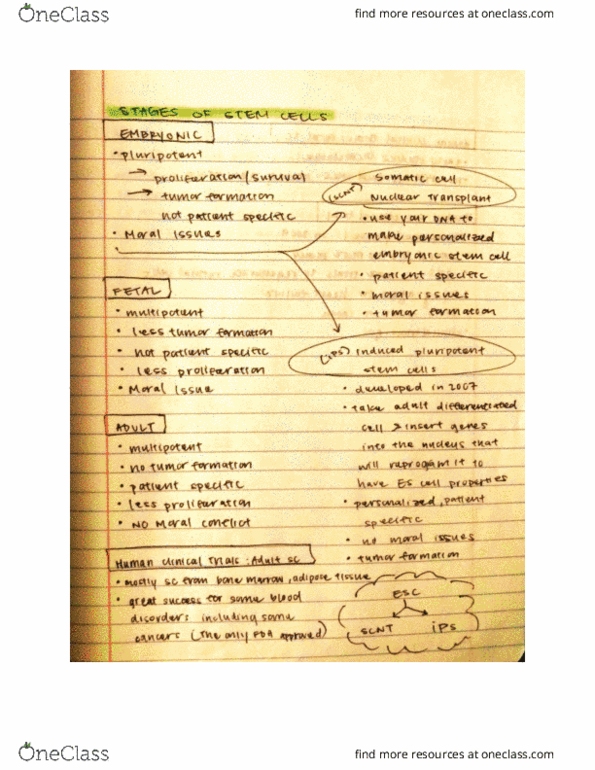 OneClass
find more resources at oneclass.com
STAGES OF STEM CELLS
EMBRYONIC
• pluripotent
→ proliferation/survival
→ tumor formation
not patient specific
• Moral Issues
FETAL
• multipotent
• less tumor formation
• not patient specific
• less proliferation
• Moral Issue
ADULT
• multipotent
• no tumor formation
• patient specific
• less proliferation
• NO Moral conflict
Human Clinical Trials: Adult SC
• mostly SC from bone marrow, adipose tissue
• great success for some blood
disorders including some
cancers (The only FDA approved)
(SCNT)
Somatic cell
Nuclear Transplant
• use your DNA to
make personalized
embryonic stem cell
• patient specific
• moral issues
• tumor formation
(iPS) Induced pluripotent
stem cells
• developed in 2007
• take adult differentiated
cell > insert genes
into the nucleus that
will reprogam it to
have ES cell properties
• personalized, patient
specific
• no moral issues
• tumor formation
ESC
SCNT iPS
OneClass
find more resources at oneclass.com